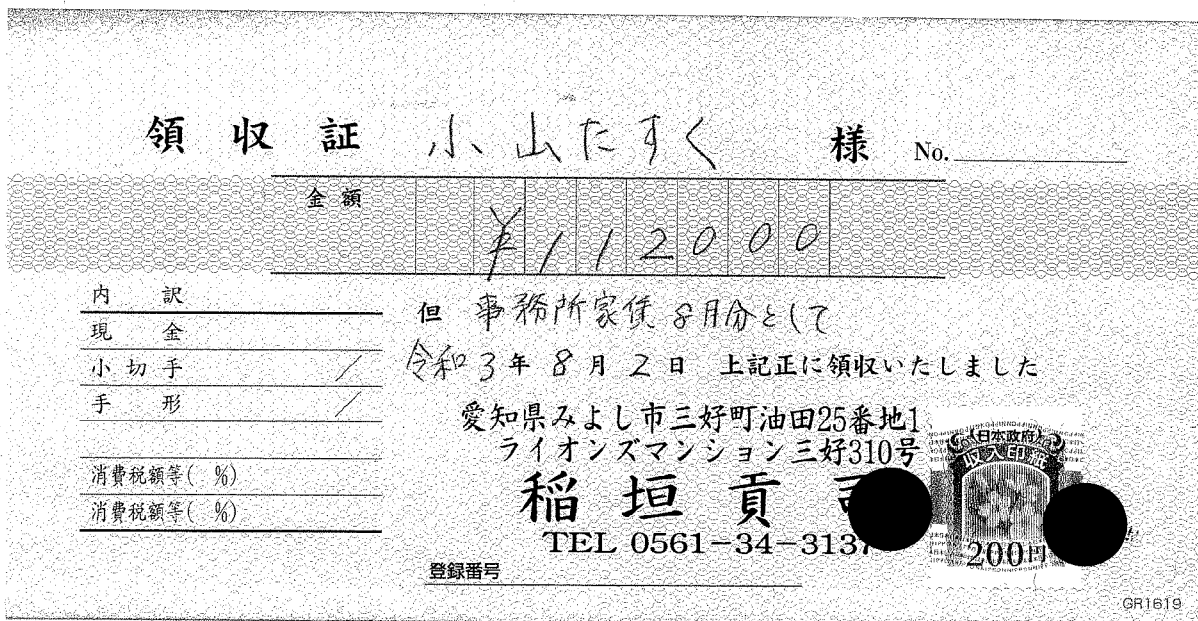 領収証 小山たすく 様 No.
金額 ¥112000
内訳
現金
小切手 /
手形 /
消費税額等( %)
消費税額等( %)
但 事務所家賃8月分として
令和3年8月2日 上記正に領収いたしました
愛知県みよし市三好町油田25番地1
ライオンズマンション三好310号
稲垣貢
TEL 0561-34-3137
登録番号
日本政府
収入印紙
200円
GR1619